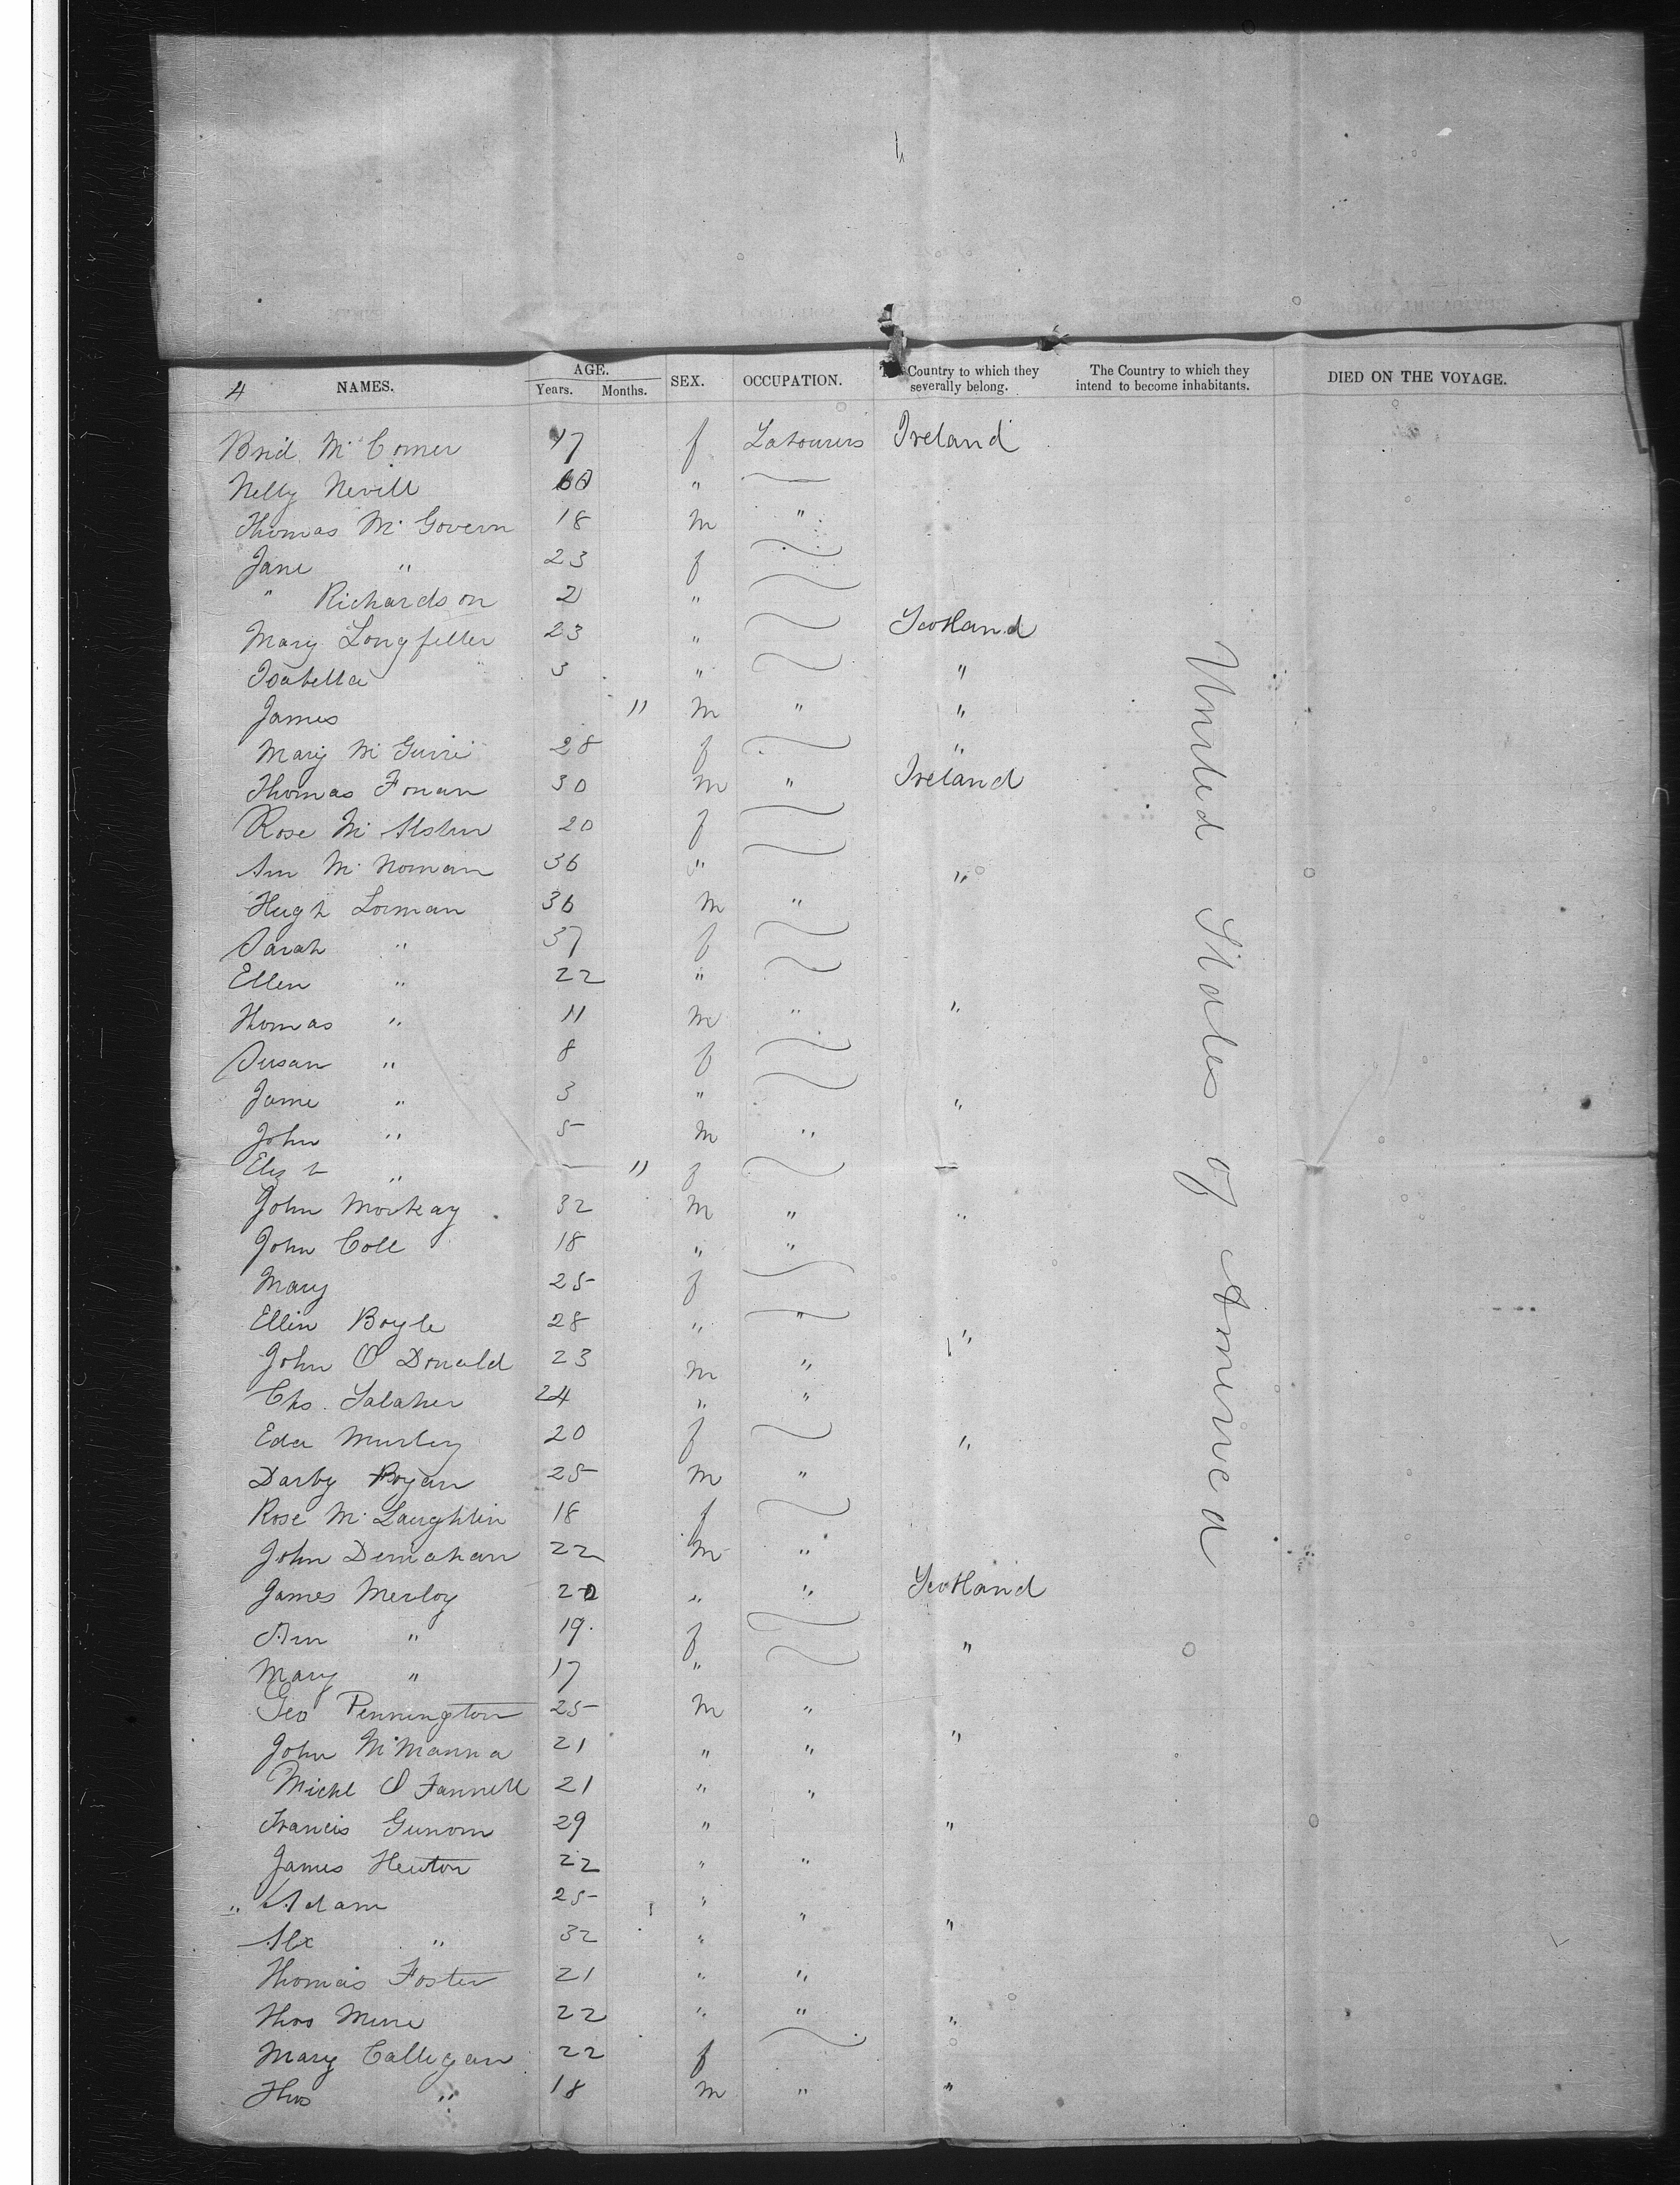 4 NAMES. AGE. Years. Months. SEX. OCCUPATION. Country to which they severally belong. The Country to which they intend to become inhabitants. DIED ON THE VOYAGE.
Brid. Mc Comer 17 f Labourers Ireland
Nelly Nevill 60 "
Thomas Mc Govern 18 m "
Jane " 23 f
" Richardson 2 "
Mary Longfeller 23 " Scotland
Isabella 3 " "
James 11 m " "
Mary Mc Guire 28 f "
Thomas Fonan 30 m " Ireland
Rose Mc 20 f
Ann Mc Noman 36 " "
Hugh Lorman 36 m "
Sarah " 37 f
Ellen " 22 "
Thomas " 11 m " "
Susan " 8 f
Jame " 3 " "
John " 5 m "
Elizth " — 11 f —
John Morkay 32 m " "
John Coll 18 " "
Mary 25 f
Ellin Boyle 28 " " "
John O Donald 23 m "
Chs. Galaher 24 " "
Eda Murley 20 f "
Darby Bogan 25 m "
Rose Mc Laughlin 18 f
John Denahan 22 m "
James Merloy 20 " " Scotland
Ann " 19 f "
Mary " 17 "
Geo Pennington 25 m "
John McManna 21 " " "
Michl O Fannell 21 " "
Francis Gunom 29 " "
James Hewton 22 " "
" Adam 25 " " "
Alx " 32 "
Thomas Foster 21 " "
Thos 22 " " "
Mary Calligan 22 f
Thos " 18 m " "
United States of America